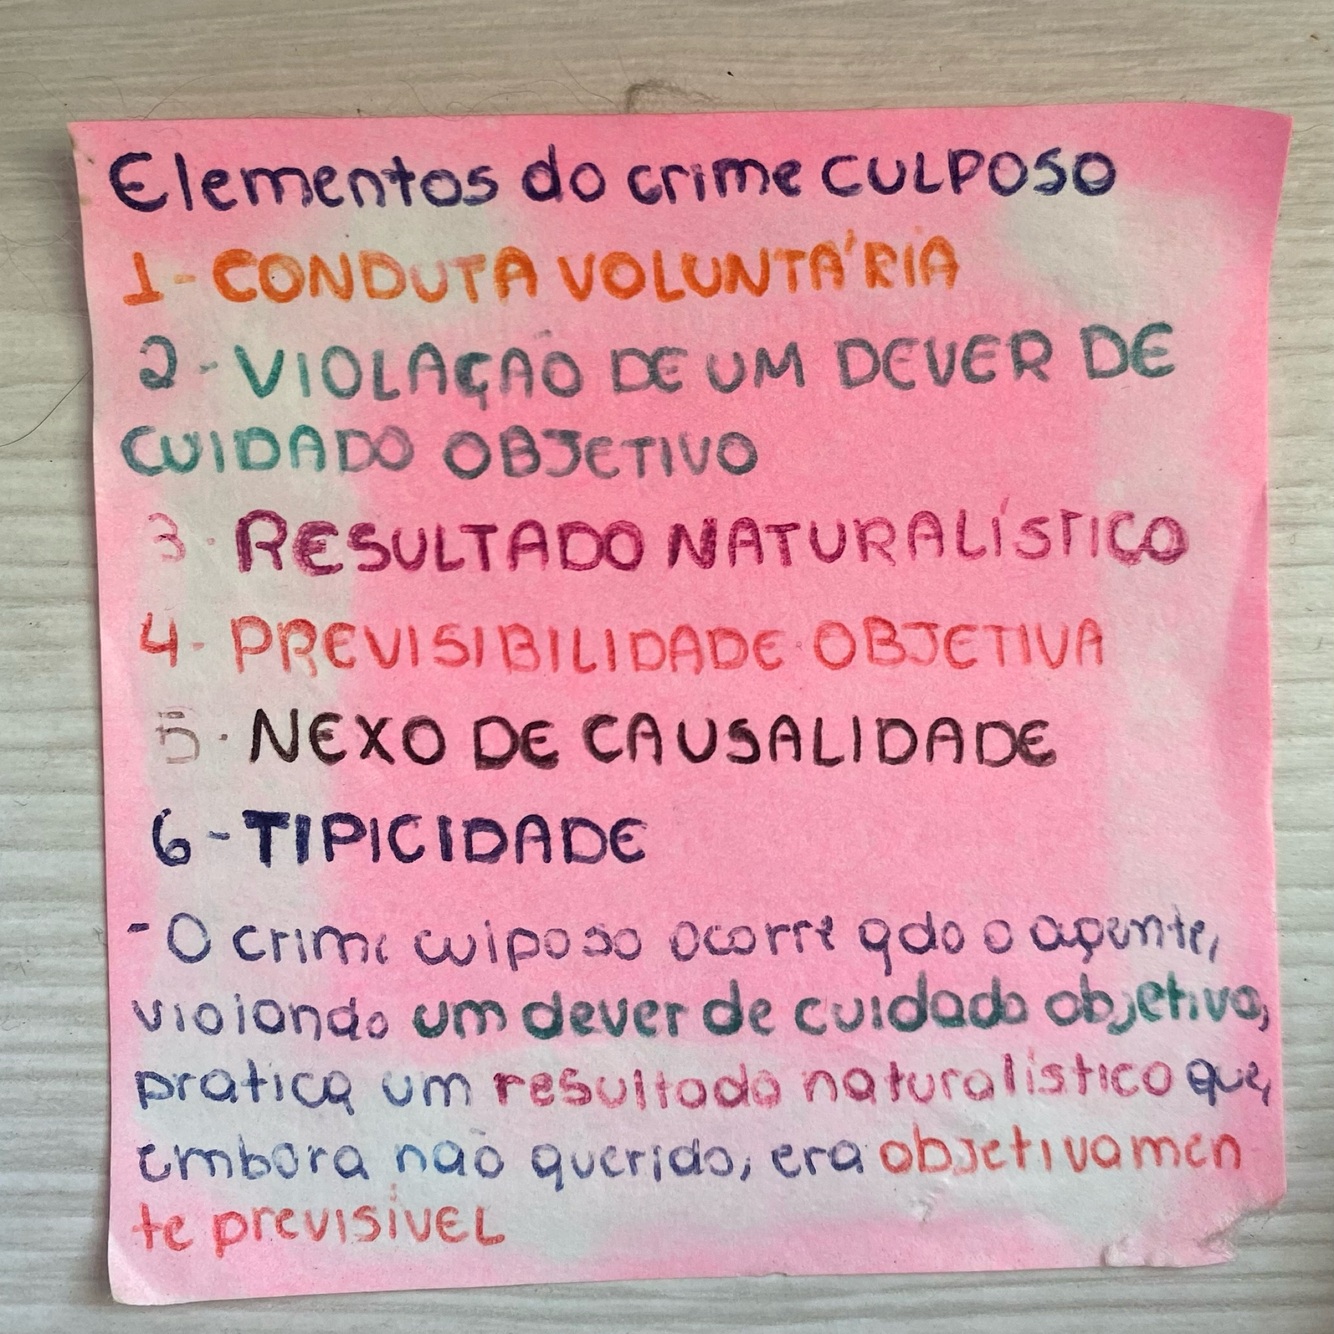 Elementos do crime CULPOSO
1- CONDUTA VOLUNTÁRIA
2- VIOLAÇÃO DE UM DEVER DE
CUIDADO OBJETIVO
3- RESULTADO NATURALÍSTICO
4- PREVISIBILIDADE OBJETIVA
5- NEXO DE CAUSALIDADE
6- TIPICIDADE
- O crime culposo ocorre qdo o agente,
violando um dever de cuidado objetivo,
pratica um resultado naturalístico que,
embora não querido, era objetivamen
te previsível